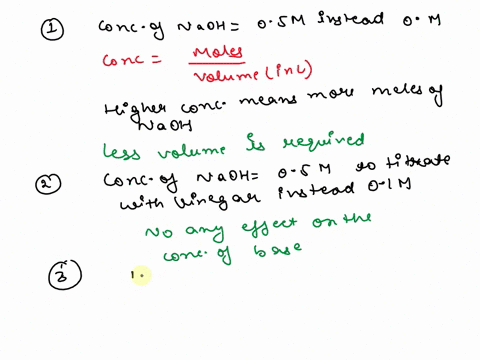 ① Conc. of NaOH = 0.5M instead 0. M
Conc = Moles / Volume (in L)
Higher conc. means more moles of
NaOH
Less volume is required
② Conc. of NaOH = 0.5 M to titrate
with vinegar instead 0.1M
No any effect on the
conc. of base
③